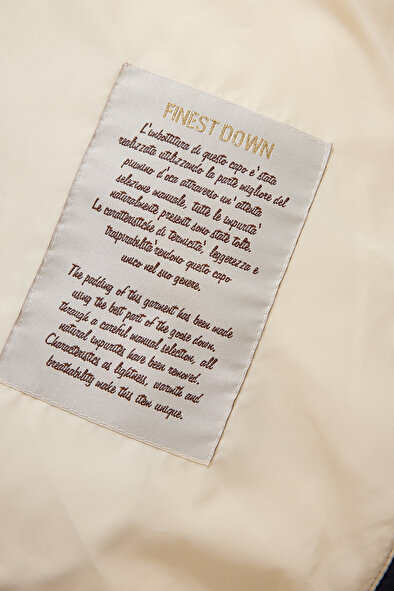 FINEST DOWN
L'imbottitura di questo capo è stata
realizzata utilizzando la parte migliore del
piumino d'oca attraverso un'attenta
selezione manuale, tutte le impurita'
naturalmente presenti sono state tolte.
Le caratteristiche di termicita', leggerezza e
traspirabilita' rendono questo capo
unico nel suo genere.
The padding of this garment has been made
using the best part of the goose down,
through a careful manual selection, all
natural impurites have been removed.
Characteristics as lightness, warmth and
breathability make this item unique.